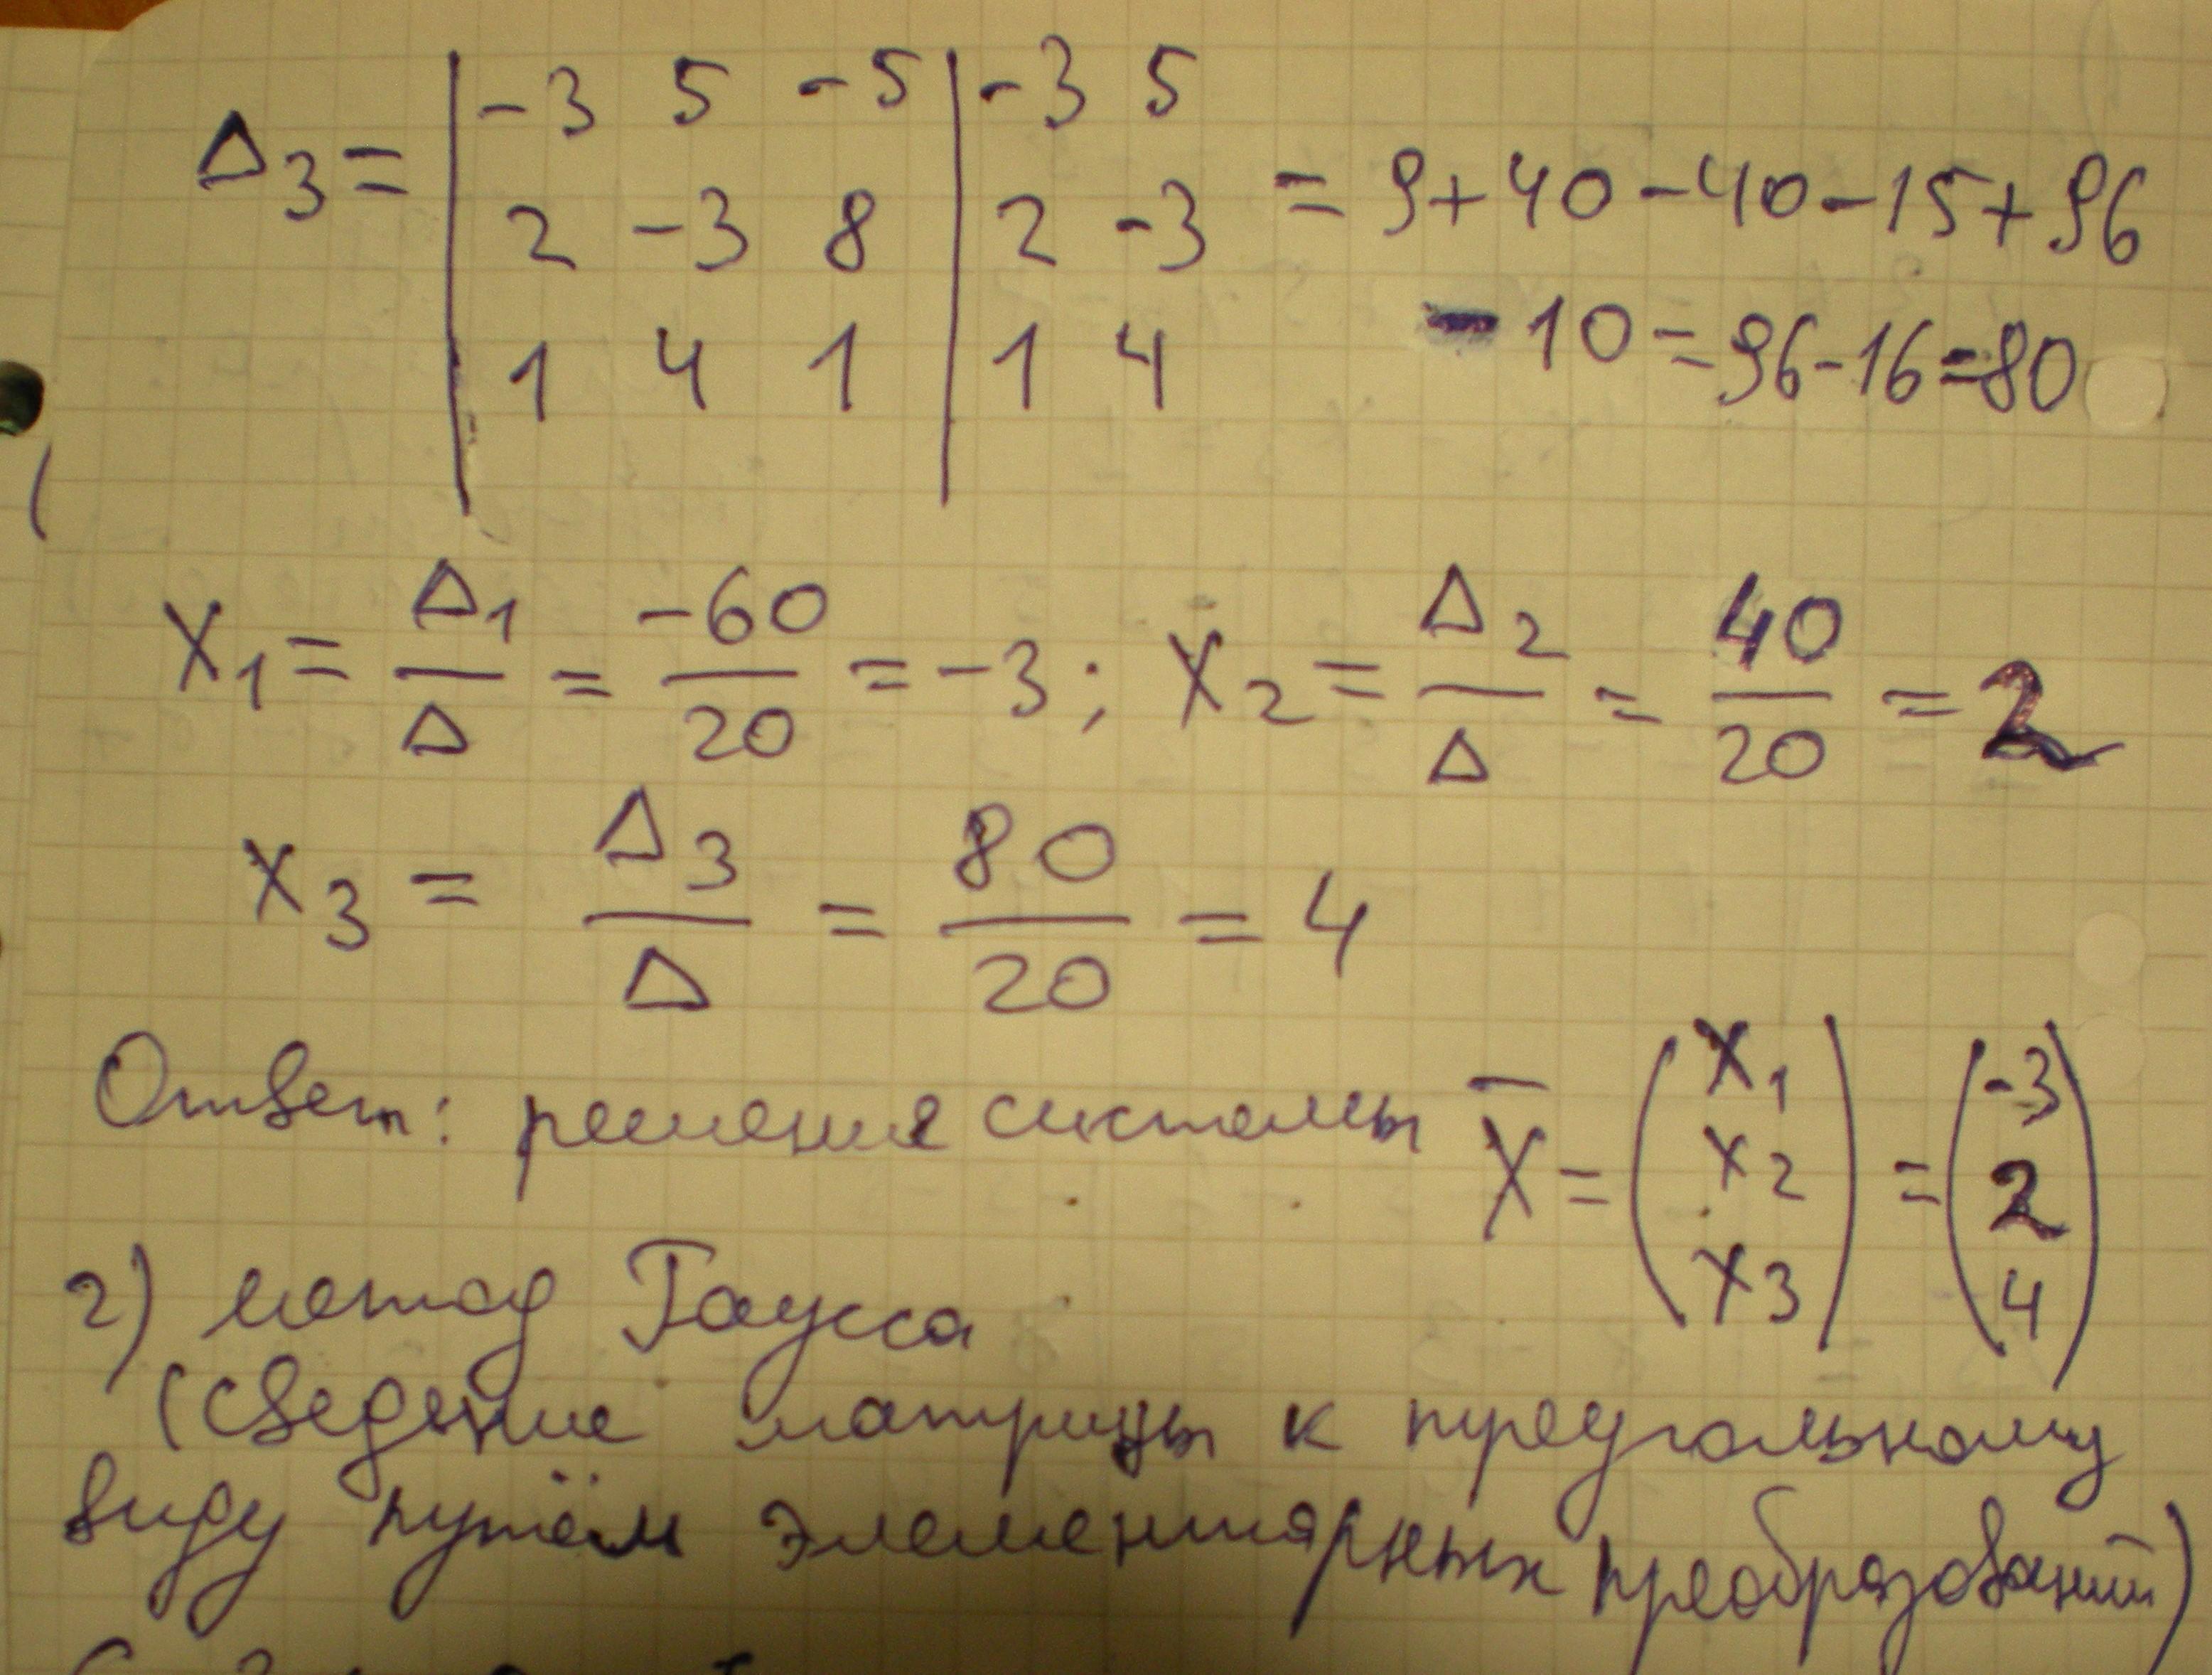 Δ3 = | -3 5 -5 | -3 5
| 2 -3 8 | 2 -3 = 9+40-40-15+96
| 1 4 1 | 1 4 -10=96-16=80
X1 = Δ1/Δ = -60/20 = -3; X2 = Δ2/Δ = 40/20 = 2
X3 = Δ3/Δ = 80/20 = 4
Ответ: решения системы X̄ = (X1 X2 X3) = (-3 2 4)
2) метод Гаусса
(сведение матрицы к треугольному
виду путём элементарных преобразований)